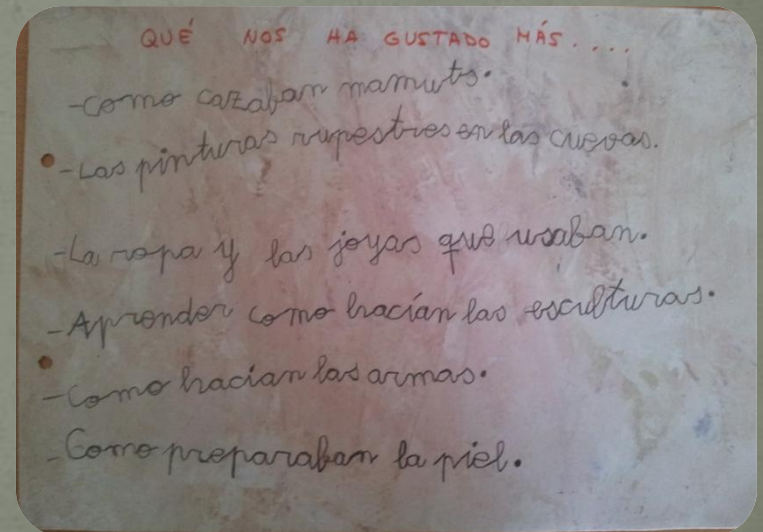 QUÉ NOS HA GUSTADO MÁS....
-Como cazaban mamuts.
-Las pinturas rupestres en las cuevas.
-La ropa y las joyas que usaban.
-Aprender como hacían las esculturas.
-Como hacían las armas.
-Como preparaban la piel.